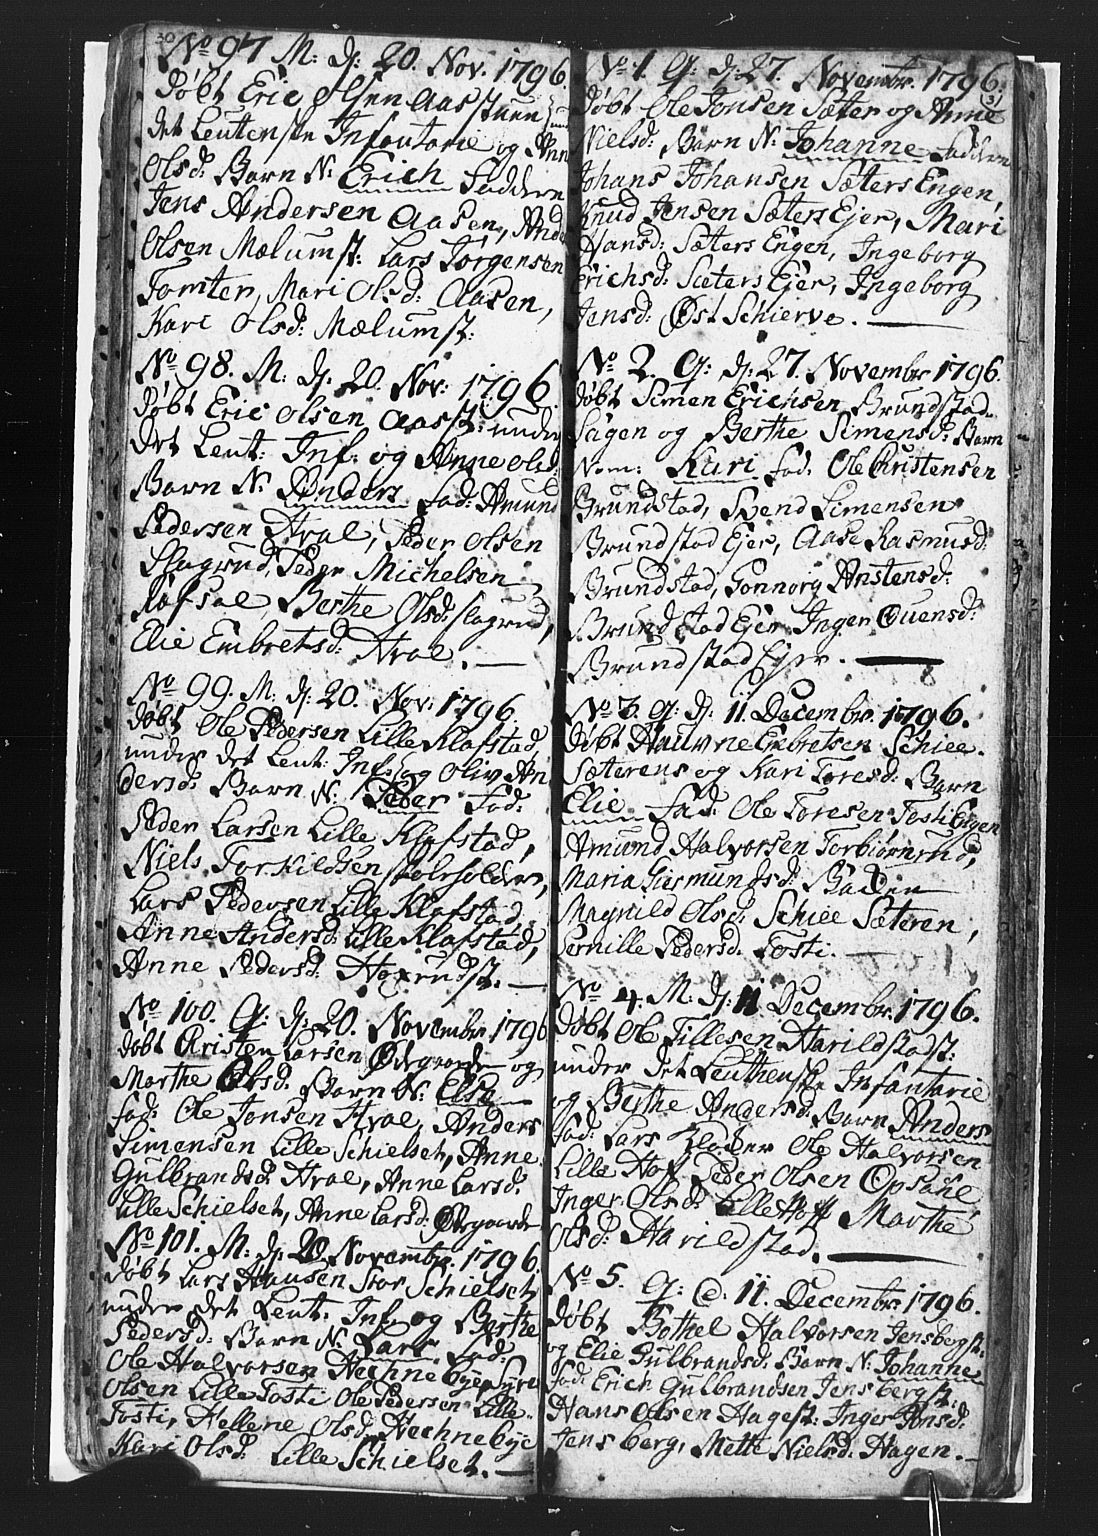 30
No 97 M: d: 20. Nov. 1796
døbt Eric Olsen Aasstuen
det Leutenske Infantarie og Ann
Olsd: Barn N: Erich Faddern
Jens Andersen Aasen, Ande
Olsen Mælumst: Lars Jørgensen
Tomter, Mari Olsd: Aasen,
Kari Olsd: Mælumst:
No 98. M: d: 20. Nov: 1796
døbt Eric Olsen Aasst: under
det Leut: Inf: og Anne Olsd:
Barn N: Anders Fad: Amund
Pedersen Hval, Peder Olsen
Slagrud, Peder Michelsen
Røfsal, Berthe Olsd: Slagrud,
Elie Embretsd: Hval. —
No 99. M: d: 20. Nov: 1796.
døbt Ole Pedersen Lille Klafstad,
under det Leut: Inf: og Oliv An
dersd: Barn N: Peder Fad:
Peder Larsen Lille Klafstad,
Niels Torkildsen
Lars Pedersen Lille Klafstad
Anne Andersd: Lille Klafstad,
Anne Pedersd: Hoxrudst. —
No 100. G: d: 20. Novembr. 1796
døbt Cristen Larsen Østgaarde og
Marthe Olsd. Barn N: Else
Fad: Ole Jonsen Hval, Anders
Simensen Lille Schielset, Anne
Gulbrandsd: Hval, Anne Larsd.
Lille Schielset, Anne Larsd: Østgaarde
No 101. M: d: 20 Novembr. 1796.
døbt Lars Hansen Stor Schielset
under det Leut: Inf: og Berthe
Pedersd: Barn N: Lars Fad:
Ole Halvorsen Hechnebye, Syver
Olsen Lille Tosti Ole Pedersen Lille
Tosti, Hellene Olsd. Hechnebye
Kari Olsd: Lille Schielset. —
No 1. G: d: 27. Novembr. 1796.
31
døbt Ole Jonsen Sæter og Anne
Nielsd: Barn N: Johanne Faddern
Johans Johansen Sæters Engen,
Knud Jensen Sæters Ejer, Mari
Hansd: Sæters Engen, Ingeborg
Erichsd: Sæters Ejer, Ingeborg
Jensd: Øst Schierve. —
No 2. G: d: 27. Novembr 1796.
døbt Simen Erichsen Brundstad
Hagen og Berthe Simensd: Barn
Nom: Kari Fad: Ole Christensen
Brundstad, Svend Simensen
Brundstad Ejer, Aase Rasmusd.
Brundstad, Gonnorg Anstensd:
Brundstad Ejer Inger Ouensd:
Brundstad Ejer. —
No 3. G: d: 11 Decembr. 1796.
døbt Hauvne Embretsen Schiee
Sæterens og Kari Toresd: Barn
Elie Fad: Ole Toresen Tosti Engen
Amund Halvorsen Torbiørnrud,
Maria Giermundsd:
Magnild Olsd: Schiee Sæteren,
Pernille Pedersd: Tosti. —
No 4. M: d: 11 Decembr. 1796.
døbt Ole Tillesen Harildstadst:
under det Leuthenske Infantarie
og Berthe Andersd: Barn Anders
Fad: Lars Ole Halvorsen
Lille Hoff Peder Olsen Opsahl
Inger Olsd: Lille Hoff Marthe
Olsd: Harildstad. —
No 5. G: d: 11. Decembr 1796.
døbt Bothel Halvorsen Jensbergst:
og Elie Gulbrandsd: Barn N: Johanne
Fad: Erich Gulbrandsen Jensbergst:
Hans Olsen Hagest: Inger Jonsd:
Jensberg, Mette Nielsd: Hagen. —